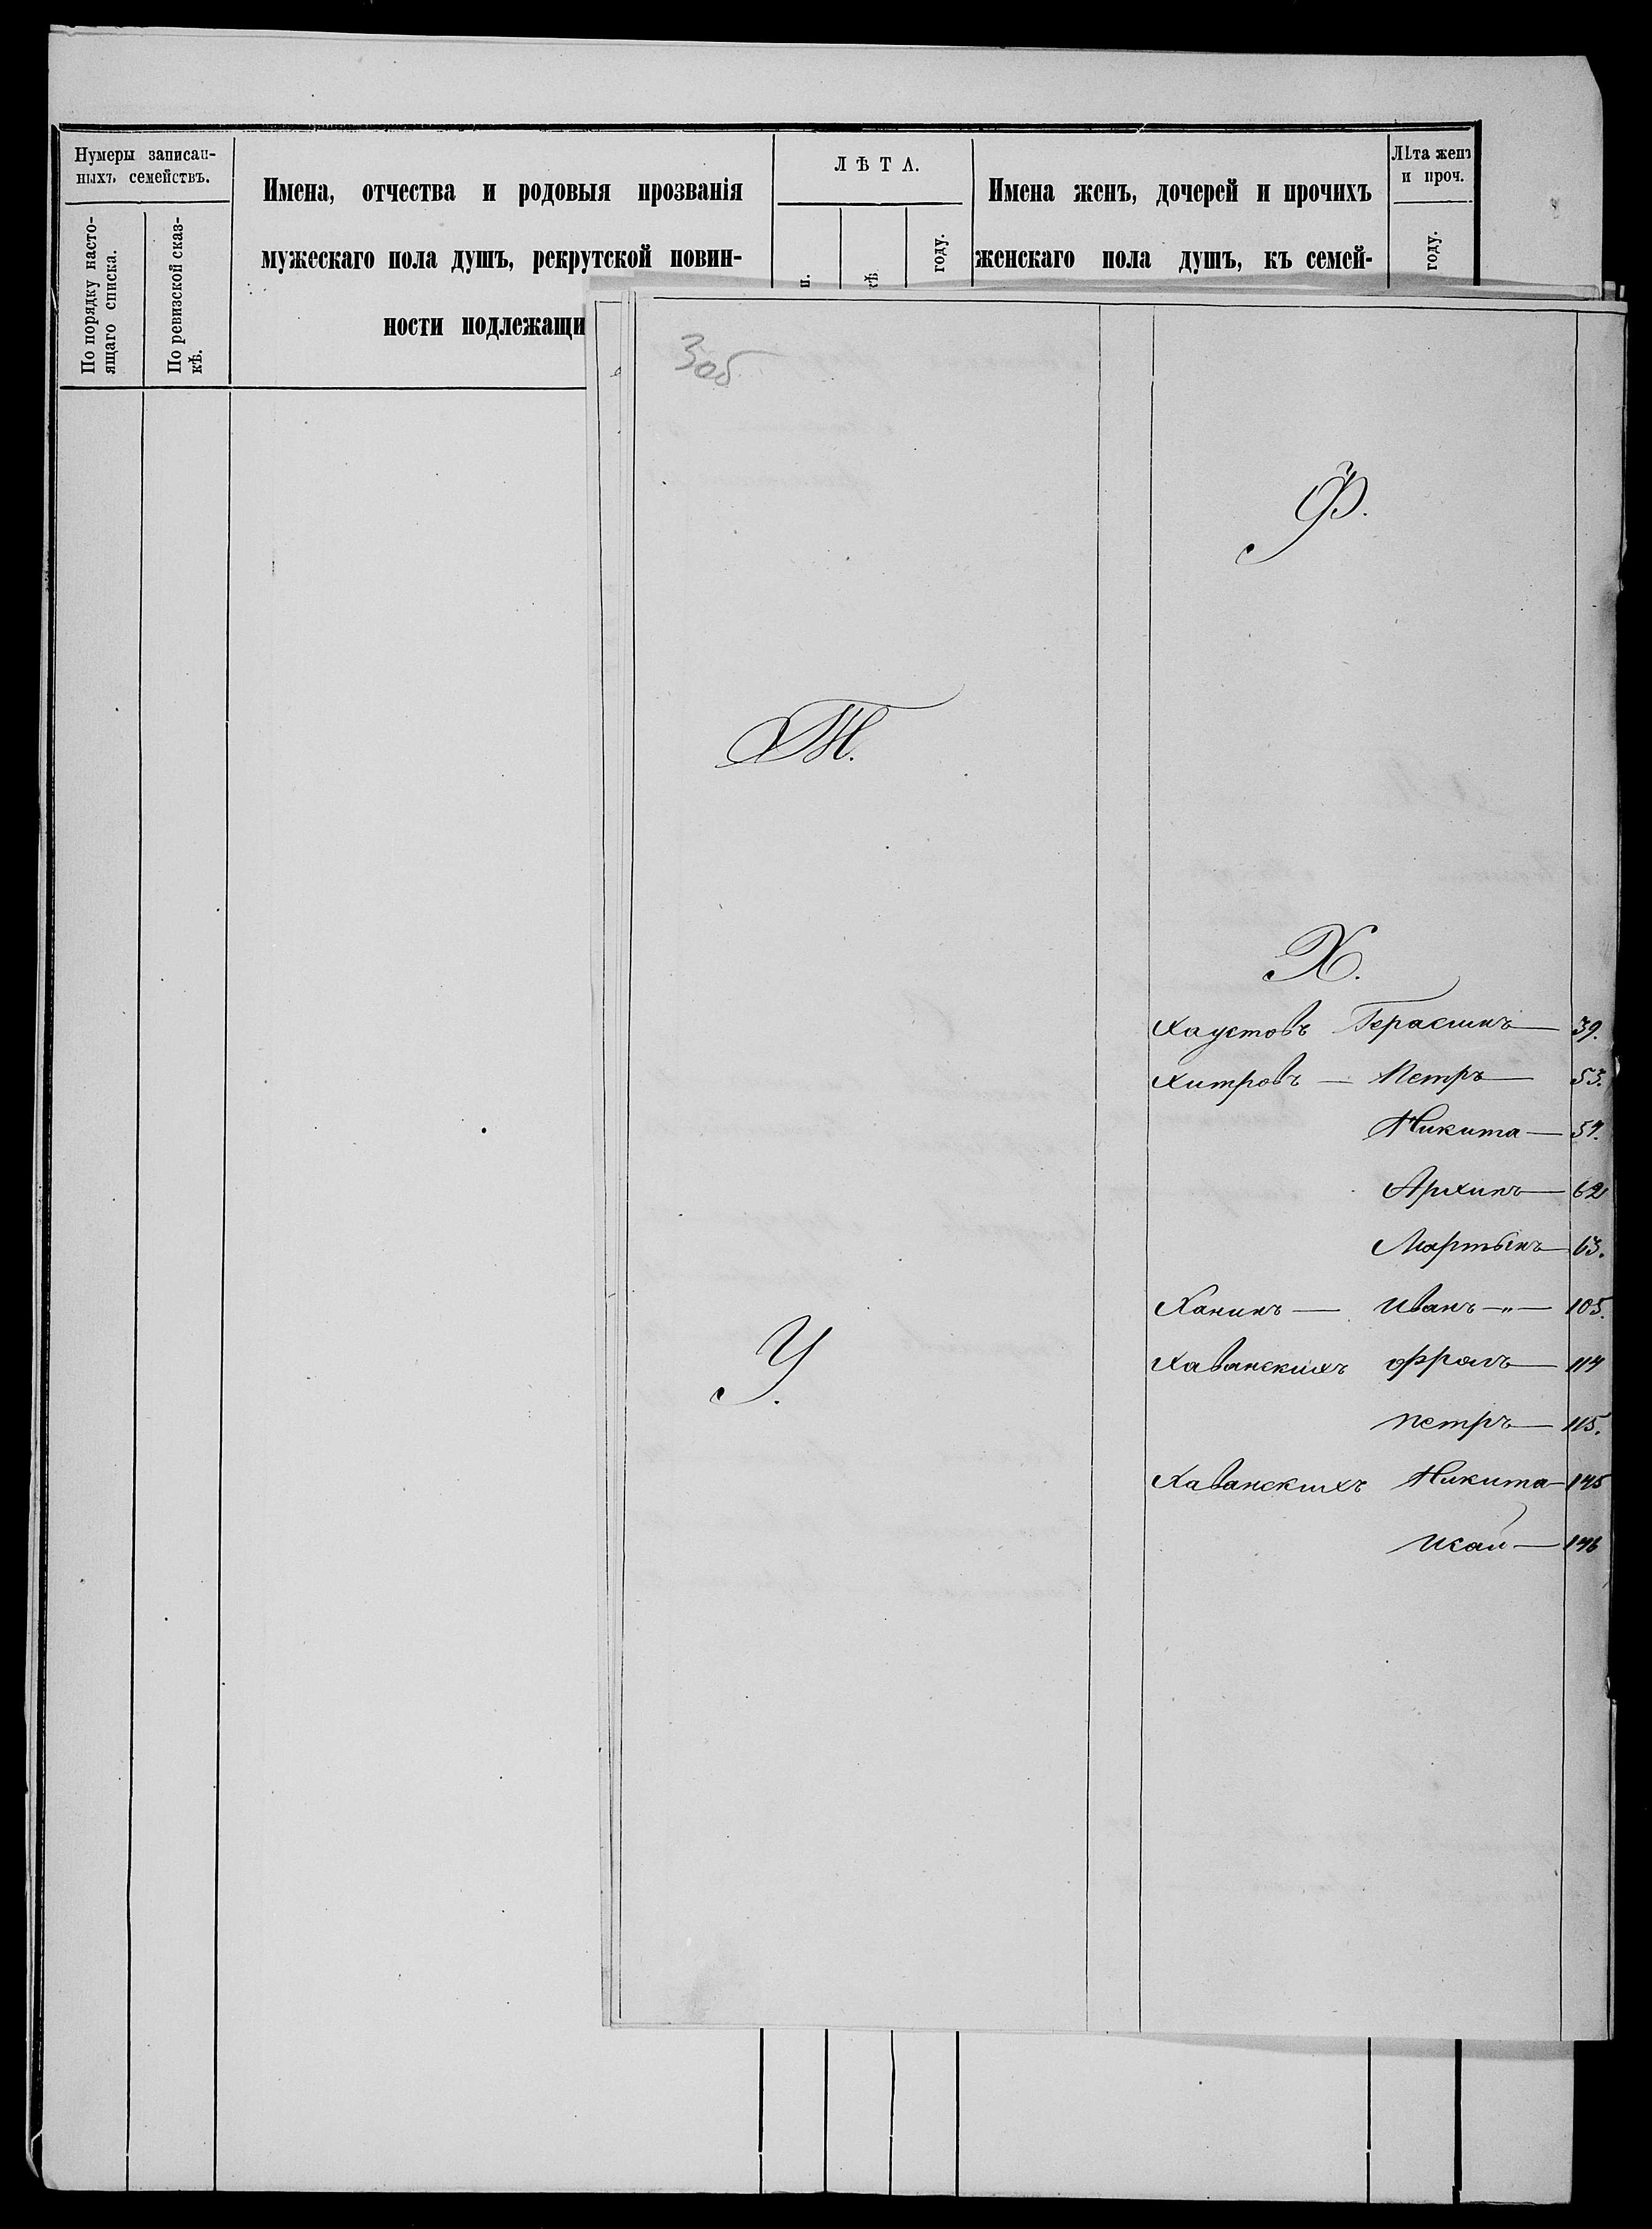 Нумеры записан-
ныхъ семействъ.
По порядку насто-
ящаго списка.
По ревизской сказ-
кѣ.
Имена, отчества и родовыя прозванія
мужескаго пола душъ, рекрутской повин-
ности подлежащи
ЛѢТА.
году.
Имена женъ, дочерей и прочихъ
женскаго пола душъ, къ семей-
Лѣта женъ
и проч.
году.
3об
Т.
У.
Ф.
Х.
Хаустовъ Герасимъ — 39.
Хитровъ — Петръ — 53.
Никита — 57.
Архипъ — 62
Мартынъ — 63.
Ханинъ — Иванъ — " — 105.
Хаванскихъ Фролъ — 114
Петръ — 115.
Хаванскихъ Никита — 145
Исай — 146